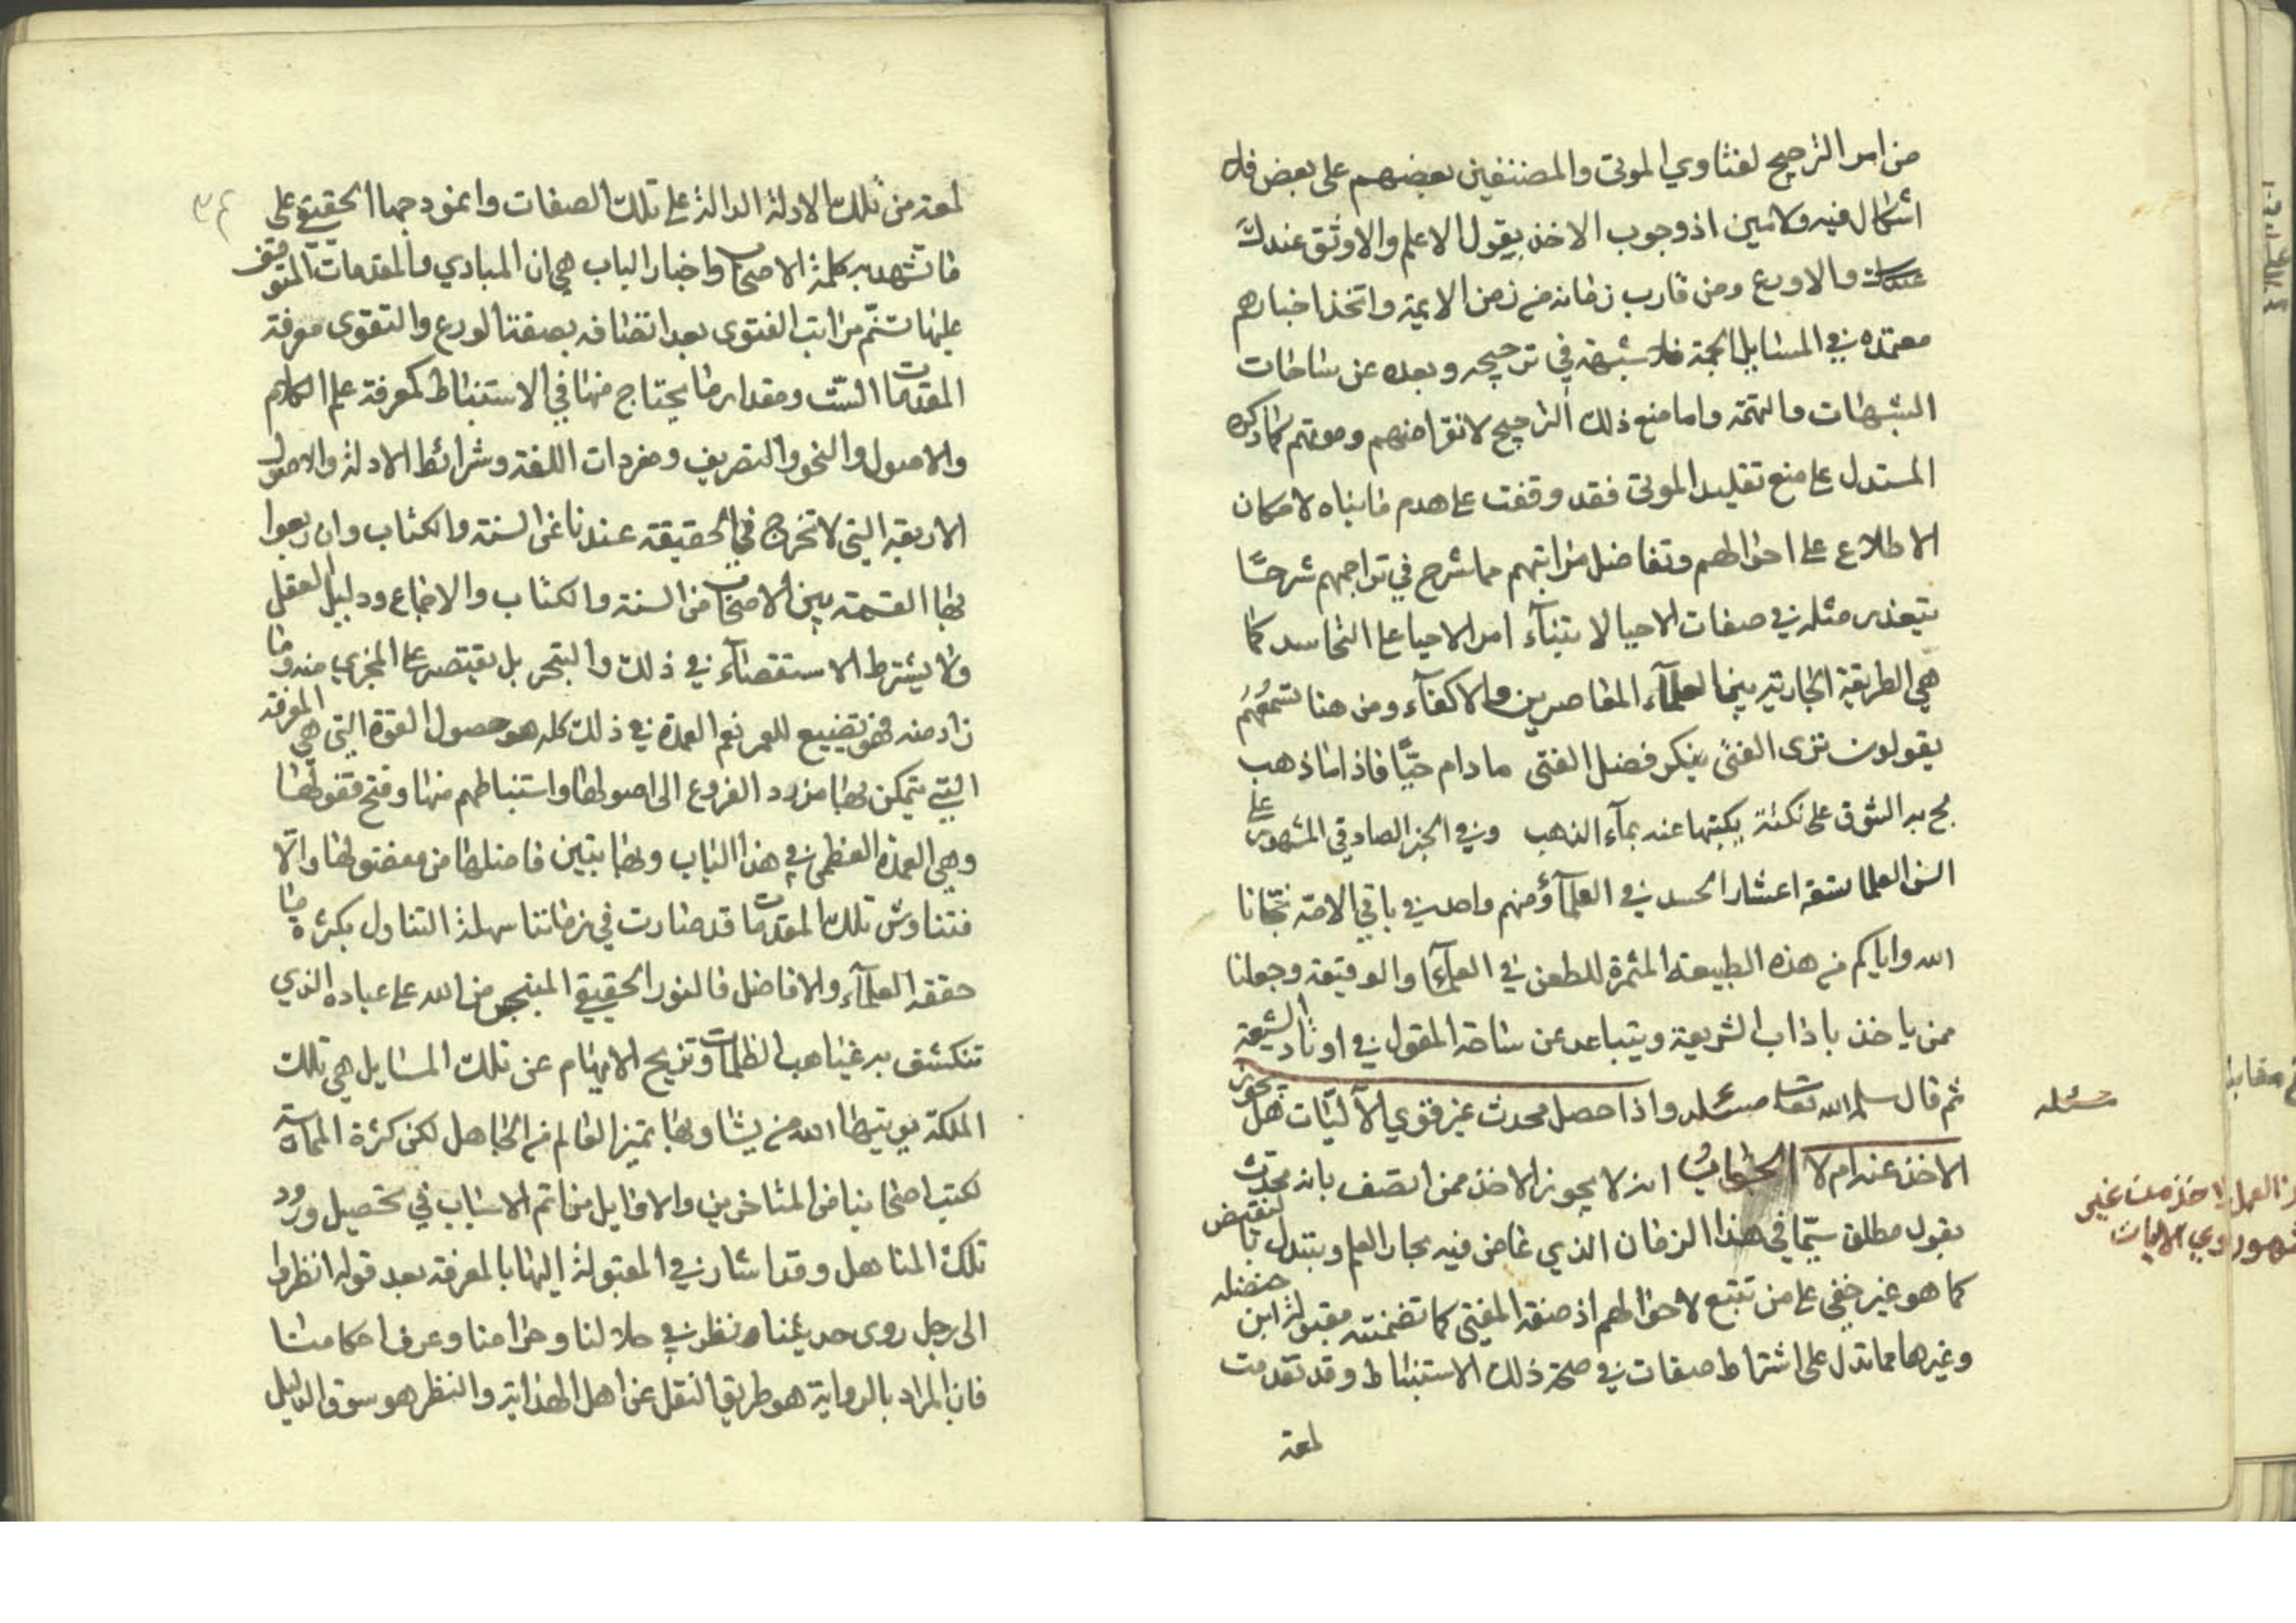 من امر الترجيح لفتاوي الموتى والمصنفين بعضهم على بعض فلا
اشكال فيه ولا مين اذ وجوب الاخذ بقول الاعلم والاوثق عندك
والاورع ومن قارب زمانه من زمن الايمة واتخذ اخبارهم
معتمده في المسايل الجمة فلا شبهة في ترجيحه وبعده عن ساحات
الشبهات والتهمة واما منع ذلك الترجيح لانقراضهم وموتهم كما ذكره
المستدل على منع تقليد الموتى فقد وقفت على هدم ما بناه لامكان
الاطلاع على احوالهم وتفاضل مراتبهم مما شرح في تراجمهم شرحًا
يتعذر مثله في صفات الاحيا لابتنآء امر الاحيا على التحاسد كما
هي الطريقة الجارية بين العلمآء المعاصرين والاكفآء ومن هنا تسمعُهُم
يقولون ترى الفتى ينكر فضل الفتى ما دام حيًّا فاذا ما ذهب
لج به الشوق على نكتة يكتبها عنه بمآء الذهب وفي الخبر الصادقي المشهور على
السن العلما تسعة اعشار الحسد في العلمآؤ ومنهم واحد في باقي الامة نجّانا
الله واياكم من هذه الطبيعة المثمرة للطعن في العلمآء والوقيعة وجعلنا
ممن ياخذ باداب الشريعة ويتباعد عن ساحة المقول في اوتاد الشيعة
ثم قال سلمه الله تعالى مسئله واذا حصل محدث غير قوي الآليّات هل يجوز
الاخذ عنه ام لا الجوابُ انه لا يجوز الاخذ ممن اتصف بانه محدث
بقول مطلق سيّما في هذا الزمان الذي غاض فيه بحار العلم وتبدل بالنقيض
كما هو غير خفي على من تتبع لاحوالهم اذ صفة المفتي كما تضمنته مقبولة ابن حنضله
وغيرها مما تدل على اشتراط صفات في صحة ذلك الاستنباط وقد تقدمت
لمعة
مسئله
العمل لاخذ من غير
وي الاليات
مقابله
٣٤
لمعة من تلك الادلة الدالة على تلك الصفات وانموذجها الحقيقي على
ما تشهد به كلمة الاصحاب واخبار الباب هي ان المبادي والمقدمات المتوقف
عليها تنتم مراتب الفتوى بعد اتصافه بصفتا الورع والتقوى معرفة
المقدمات الستّ ومقدار ما يحتاج منها في الاستنباط كمعرفة علم الكلام
والاصول والنحو والتصريف ومفردات اللغة وشرائط الادلة والاصول
الاربعة التي لا تخرج في الحقيقة عندنا عن السنة والكتاب وان ربعوا
بها القسمة بين الاصحاب من السنة والكتاب والاجماع ودليل العقل
ولا يشترط الاستقصآء في ذلك والتبحر بل يقتصر على المجزي منه وما
زاد منه فهو تضييع للعمر نعم العمدة في ذلك كله هو حصول القوة التي هي المعرفة
التي يتمكن بها من رد الفروع الى اصولها واستنباطهم منها وفتح قفولها
وهي العمدة العظمى في هذا الباب وبها يتبين فاضلها من مفضولها والّا
فتناوش تلك المقدمات قد صارت في زماننا سهلة التناول بكثرة ما
حققه العلمآء والافاضل فالنور الحقيقي المنبجس من الله على عباده الذي
تنكشف به غياهب الظلمات وتزيح الابهام عن تلك المسايل هي تلك
الملكة يويتيها الله من يشا وبها تميز العالم من الجاهل لكن كثرة المماسة
لكتب اصحابنا من المتاخرين والاوايل من اتم الاسباب في تحصيل ورود
تلك المناهل وقد اشار في المقبولة اليها بالمعرفة بعد قوله انظروا
الى رجل روى حديثنا ونظر في حلالنا وحرامنا وعرف احكامنا
فان المراد بالرواية هو طريق النقل عن اهل الهداية والنظر هو سوق الدليل